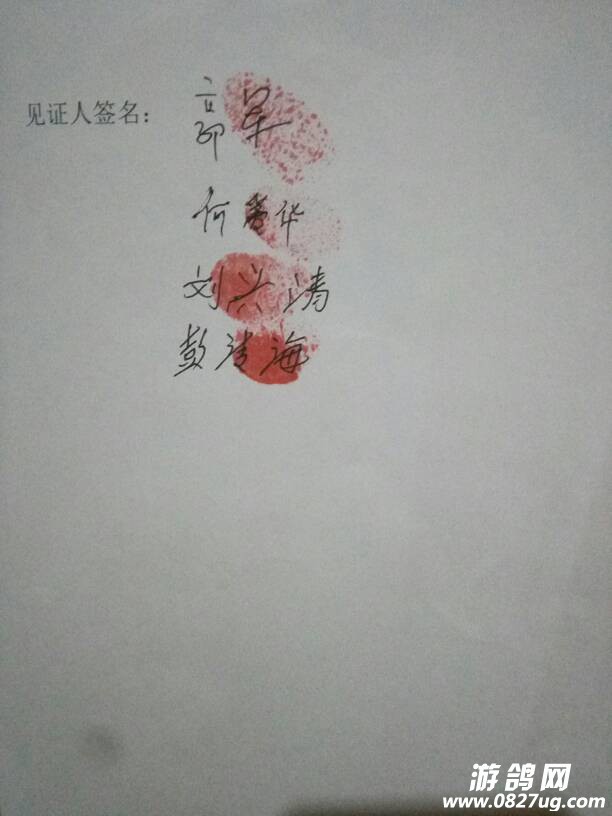 见证人签名：
郭军
何 华
刘兴涛
彭清海
游鸽网
www.0827ug.com